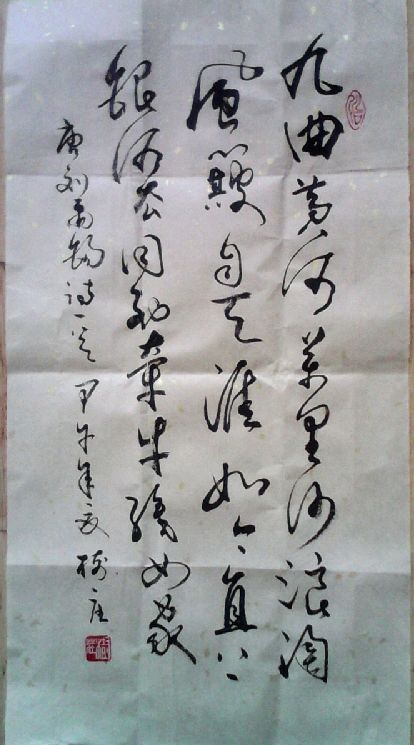 九曲黄河萬里沙浪淘
風簸自天涯如今直上
銀河去同到牵牛織女家
唐刘禹锡詩一首 甲午年夏 庄